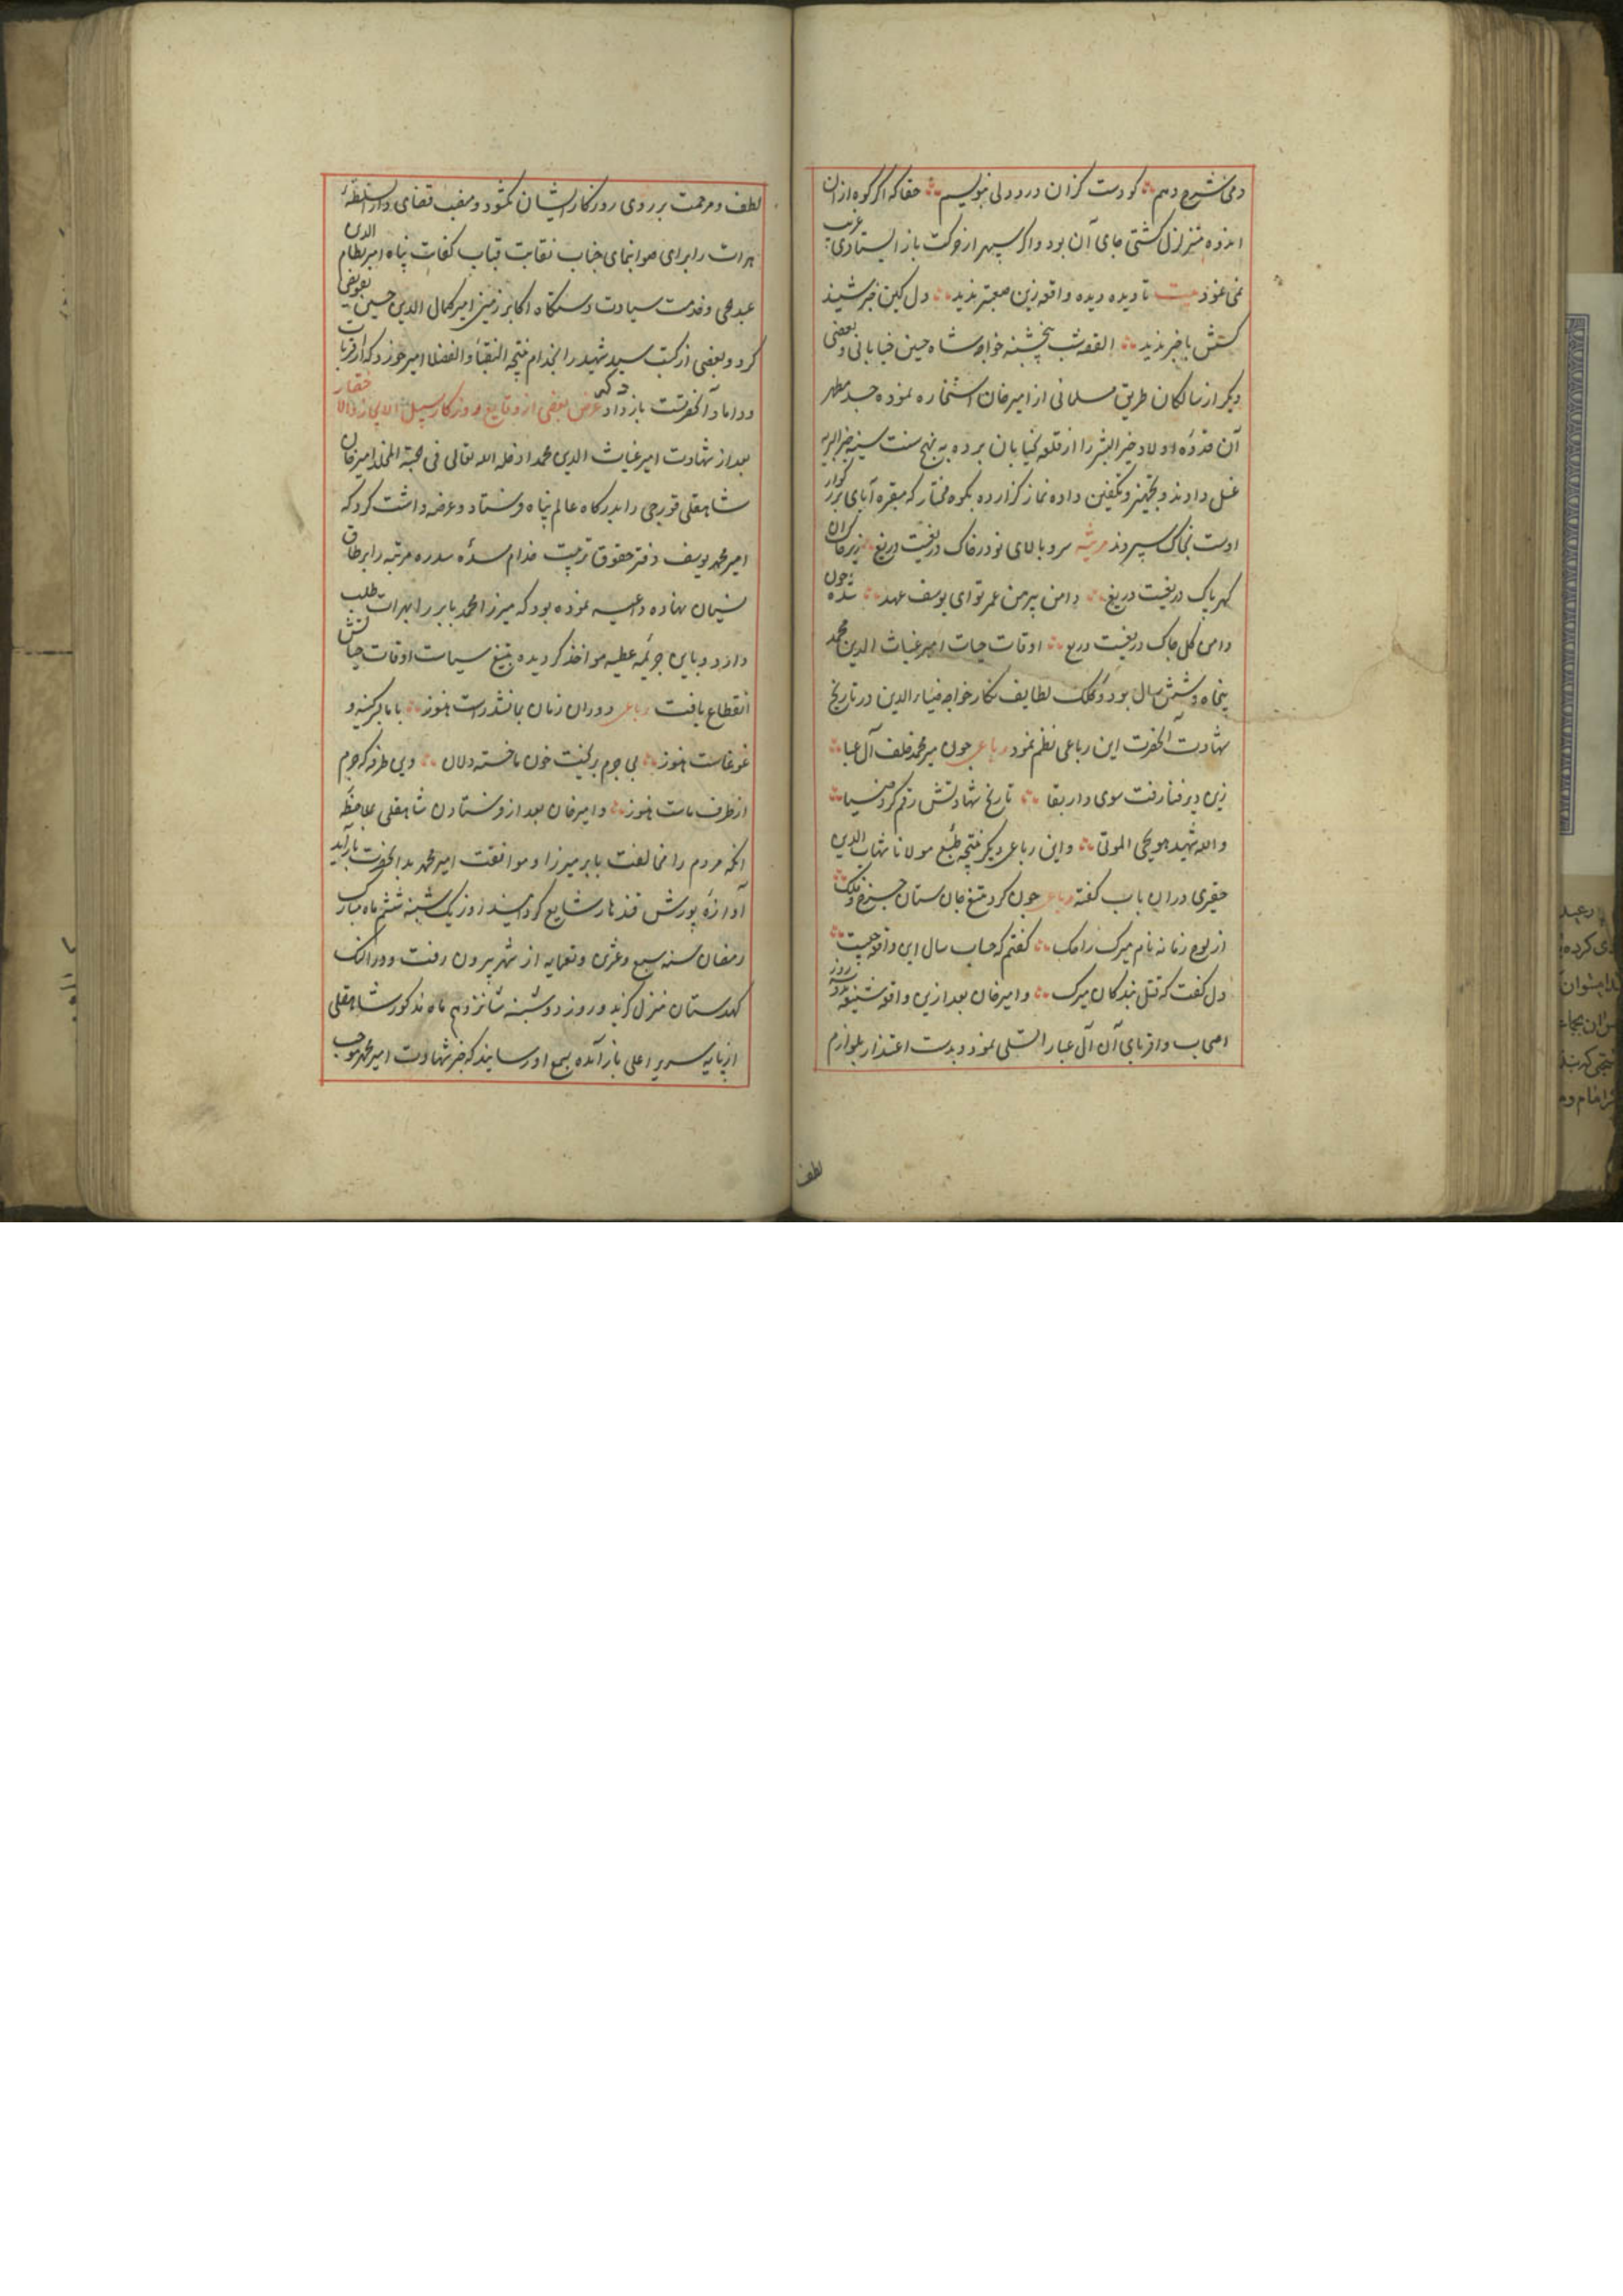 دمی شرح دهم کو دست کزان درد دلی بنویسم حقا که اگر کوه ازان
اندوه متزلزل گشتی جای آن بود و اگر سپهر از حرکت باز ایستادی غریب
نمی نمود بیت تا دیده دیده واقعه زین صعبتر ندید دل کین خبر شنید
کسش با خبر ندید القصه شب پنجشنبه خواجه شاه حسین خیابانی و بعضی
دیگر از سالکان طریق مسلمانی از امیرخان استخاره نموده جسد مطهر
آن قدوه اولاد خیر البشر را از قلعه بخیابان برده به نهج سنت سنیه خیر البریه
غسل دادند و تجهیز و تکفین داده نماز گزارده بکوه مختار که مقبره آبای بزرگوار
اوست بخاک سپردند مرثیه سرو بالای تو در خاک دریغست دریغ زیر خاک ان
گهر پاک دریغست دریغ دامن پیرهن عمر تو ای یوسف عهد شده چون
دامن گل چاک دریغست دریغ اوقات حیات امیر غیاث الدین محمد
پنجاه و شش سال بود و کلک لطایف نگار خواجه ضیاء الدین در تاریخ
شهادت آنحضرت این رباعی نظم نمود رباعی چون میر محمد خلف آل عبا
زین دیر فنا رفت سوی دار بقا تاریخ شهادتش رقم کرد
والله شهید هو یحیی الموتی و این رباعی دیگر نتیجه طبع مولانا شهاب الدین
حقیری دران باب گفته رباعی چون کرد تیغ جان ستان چرخ و فلک
از لوح زمانه نام میرک را حک گفتم که حساب سال این واقعه چیست
دل گفت که قتل بندگان میرک و امیرخان بعد ازین واقعه شنیعه سه روز
اصحاب و اقربای آن آل عبا را تسلی نمود و بدست اعتذار بلوازم
لطف
لطف و مرحمت بر روی روزگار ایشان گشود و منصب قضای دار السلطنه
هرات را برای صوابنمای جناب نقابت قباب کفایت پناه امیر نظام الدین
عبدالحی و خدمت سیادت دستگاه اکابر زمین امیر کمال الدین حسین تفویض
کرد و بعضی از کتب سید شهید را بخدام نتیجه النقبا و الفضلا امیر خوزد که از قربات
و داماد آنحضرتست باز داد ذکر عرض بعضی از وقایع روزگار سبیل
بعد از شهادت امیر غیاث الدین محمد ادخله الله تعالی فی جنة المخلد امیرخان
شاهقلی قورچی را بدرگاه عالم پناه فرستاد و عرضه داشت کرد که
امیر محمد یوسف دفتر حقوق تربیت خدام سده سدره مرتبه را بر طاق
نسیان نهاده داعیه نموده بود که میرزا محمد بابر را بهرات طلب
دارد و باین جریمه عظیمه مواخذ گردیده بتیغ سیاست اوقات حیاتش
انقطاع یافت رباعی دوران زمان بمانند راست هنوز با ما بر کینه و
غوغاست هنوز بی جرم بریخت خون ما خسته دلان وین طرفه که جرم
از طرف ماست هنوز و امیرخان بعد از فرستادن شاهقلی بملاحظه
آنکه مردم را مخالفت بابر میرزا و موافقت امیر محمد بدانحضرت باز آید
آوازه یورش قندهار شایع گردانید روز یکشنبه ششم ماه مبارک
رمضان سنه سبع و عشرین و تسعمایه از شهر بیرون رفت و در النک
کهدستان منزل گزید و روز دوشنبه شانزدهم ماه مذکور شاهقلی
از پایه سریر اعلی باز آمده بسمع او رسانید که خبر شهادت امیر محمد موجب